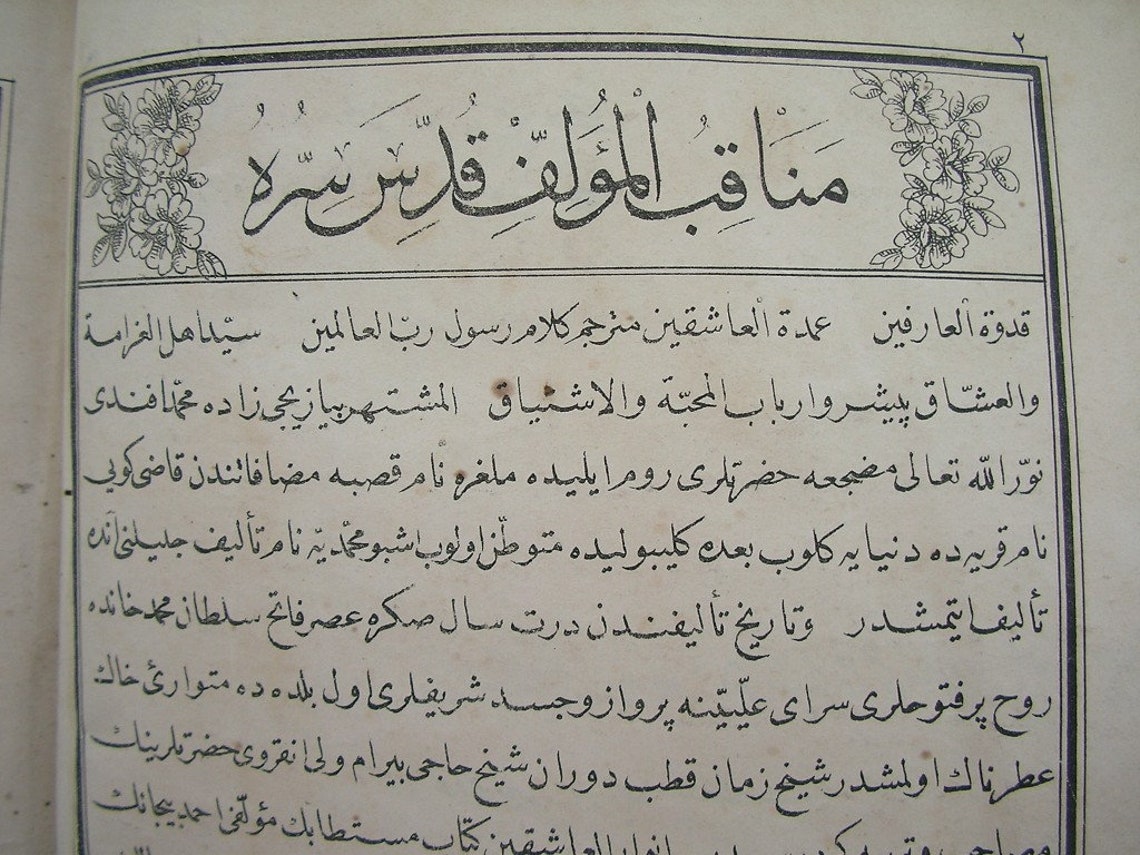 ٢
مَنَاقِبُ الْمُؤَلِّفْ قُدِّسَ سِرُّهُ
قدوة العارفين عمدة العاشقين مترجم كلام رسول ربّ العالمين سيّد اهل الغرامة
والعشّاق پيشروار باب المحبّة والاشتياق المشتهر بيازيجى زاده محمّد افندى
نوّر اللّه تعالى مضجعه حضرتلرى روم ايليده ملغره نام قصبه مضافاتندن قاضى كويى
نام قريه ده دنيايه كلوب بعده كليبوليده متوطّن اولوب اشبو محمّديّه نام تأليف جليلنى آنده
تأليف ايتمشدر وتاريخ تأليفندن درت سال صكره عصر فاتح سلطان محمد خانده
روح پر فتوحلرى سراى علّيّينه پرواز وجسد شريفلرى اول بلده ده متوارئ خاك
عطرناك اولمشدر شيخ زمان قطب دوران شيخ حاجى بيرام ولى انقروى حضرتلرينك
انوار العاشقين كتاب مستطابك مؤلّفى احمد بيجانك